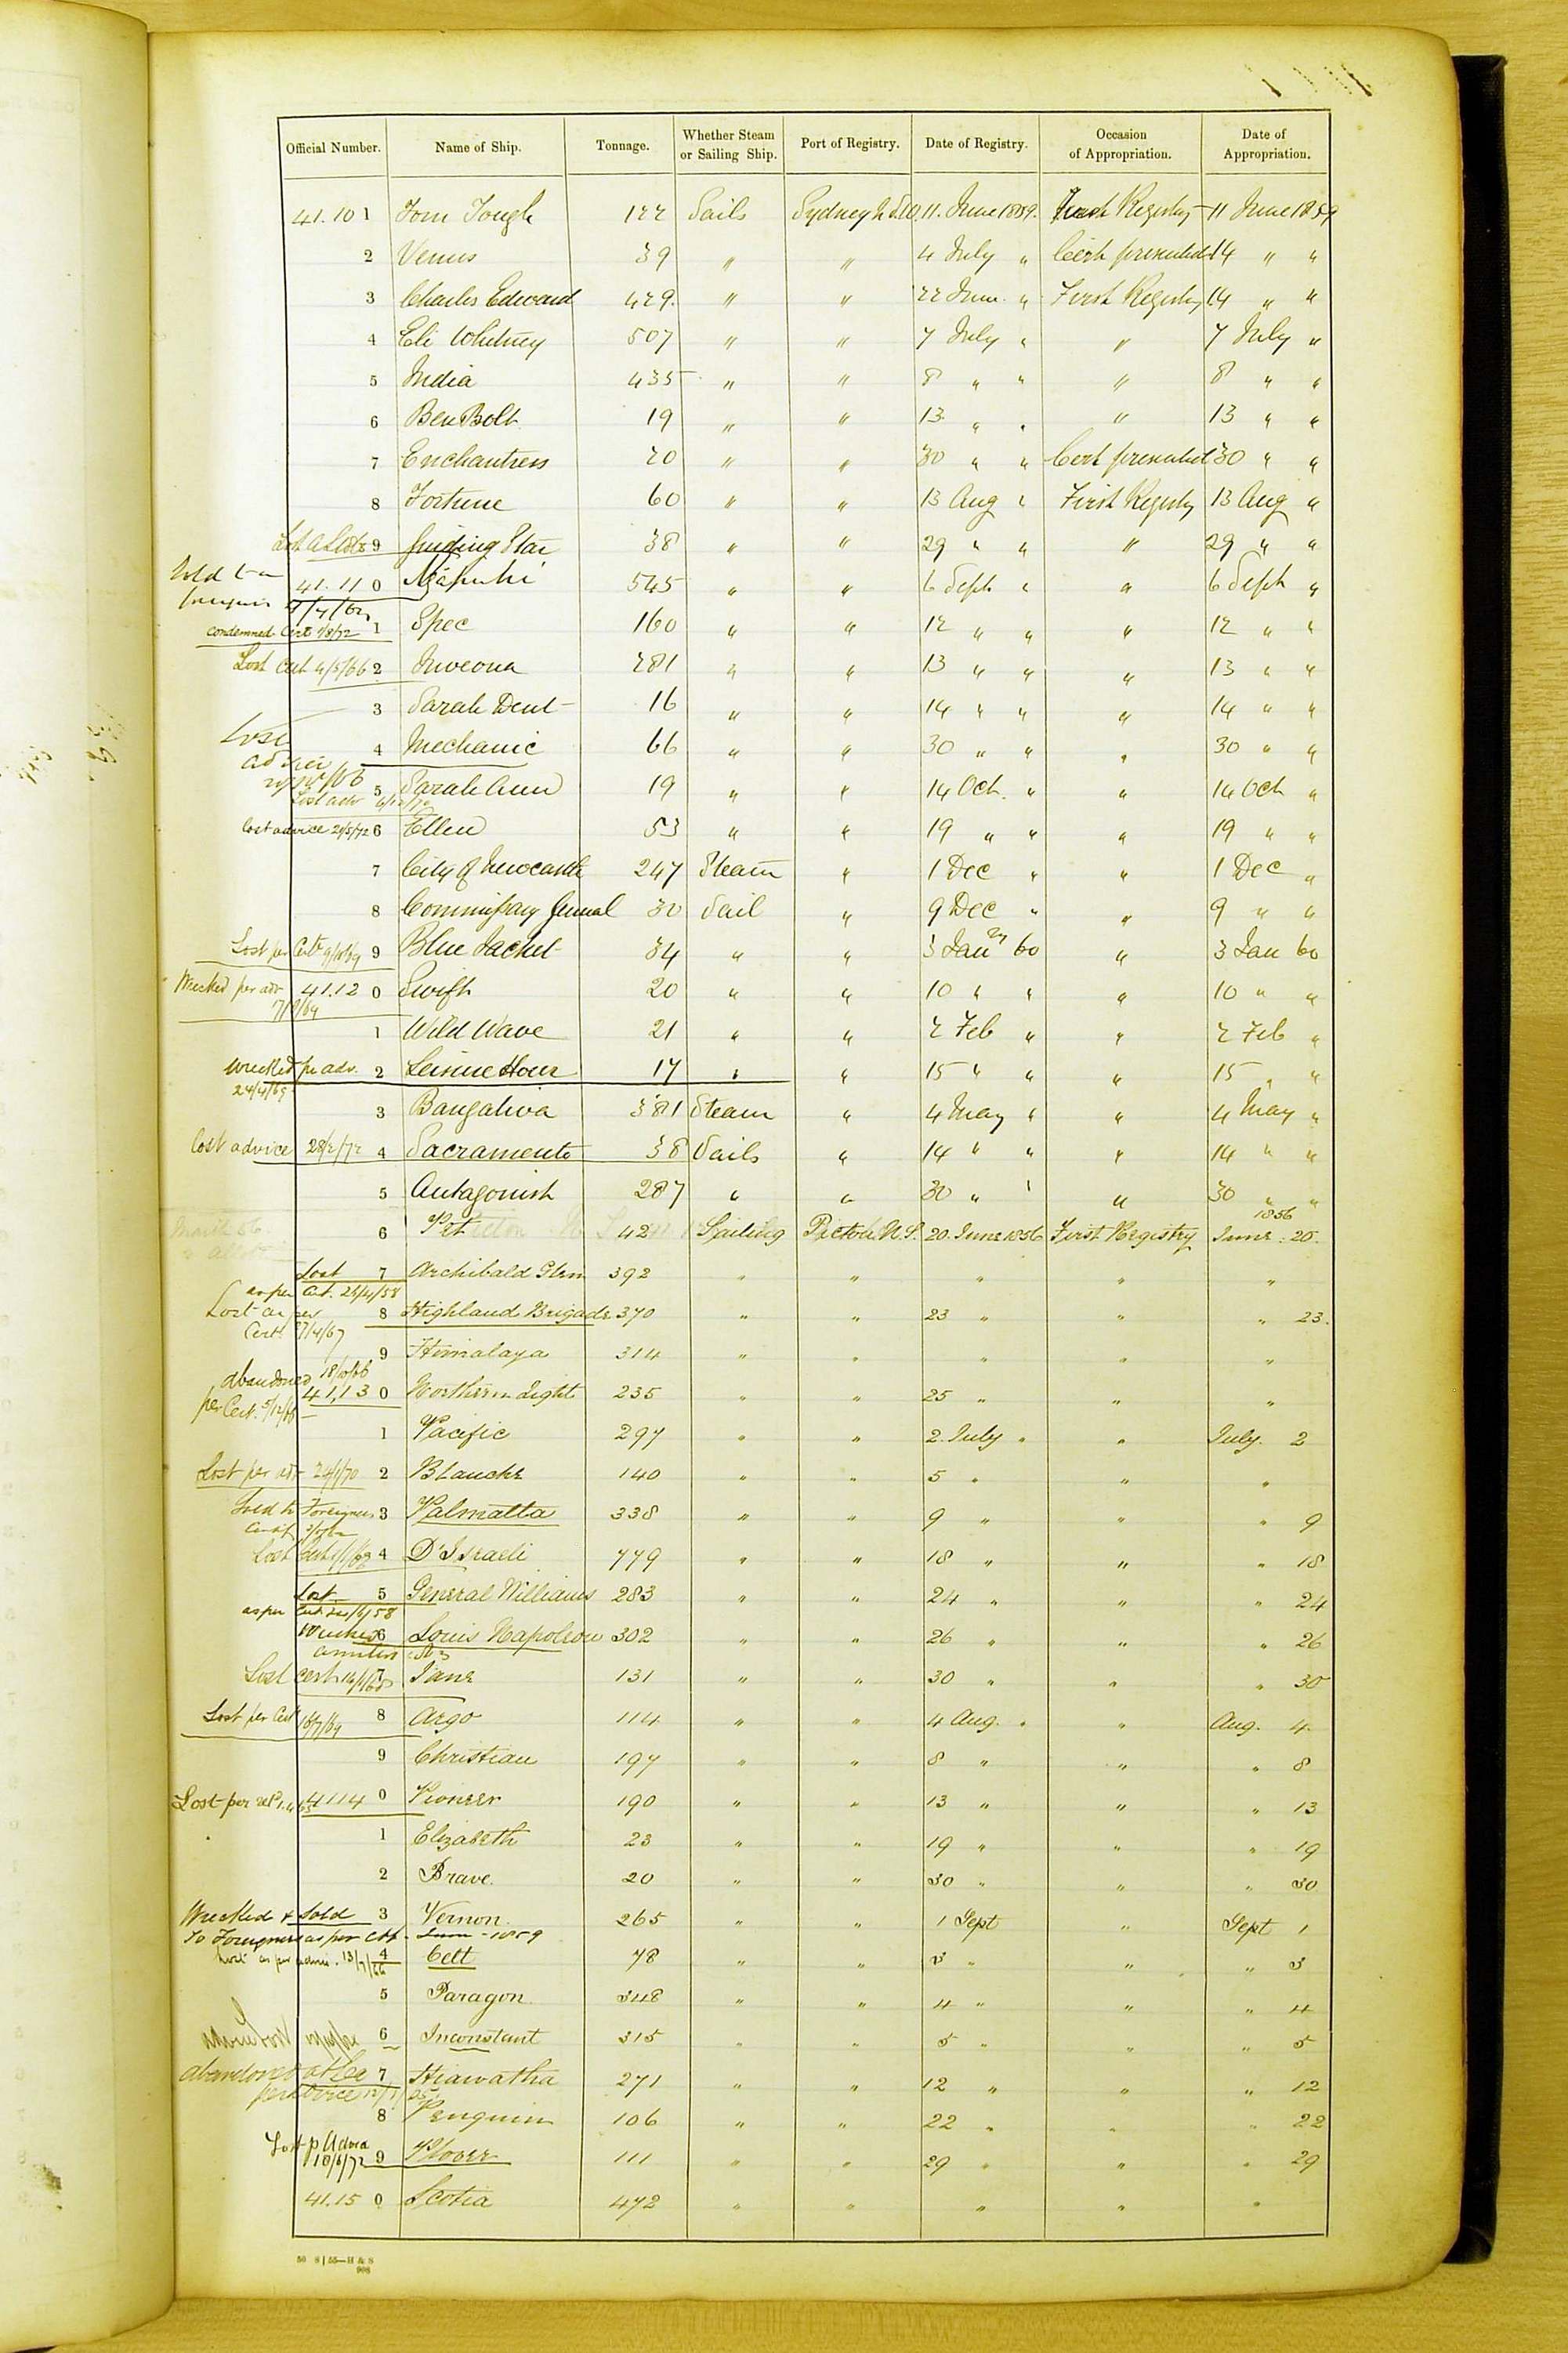 Official Number. Name of Ship. Tonnage. Whether Steam or Sailing Ship. Port of Registry. Date of Registry. Occasion of Appropriation. Date of Appropriation.
41.10 1 Tom Tough 122 Sails Sydney N.S.W. 11. June 1859. First Registry 11 June 1859
2 Venus 39 " " 4 July " Cert presented 14 " "
3 Charles Edward 429. " " 22 June " First Registry 14 " "
4 Eli Whitney 507 " " 7 July " " 7 July "
5 India 435 " " 8 " " " 8 " "
6 Ben Bolt 19 " " 13 " " " 13 " "
7 Enchantress 20 " " 30 " " Cert presented 30 " "
8 Fortune 60 " " 13 Aug " First Registry 13 Aug "
9 Guiding Star 38 " " 29 " " " 29 " "
Sold to a foreigner 41.11 0 Ngapuhi 545 " " 6 Sept " " 6 Sept "
condemned Cert 1 Spec 160 " " 12 " " " 12 " "
Lost Cert 4/5/66 2 281 " " 13 " " " 13 " "
3 Sarah Dent 16 " " 14 " " " 14 " "
Lost 4 Mechanic 66 " " 30 " " " 30 " "
5 Sarah Ann 19 " " 14 Oct. " " 14 Oct "
Lost advice 21/5/72 6 Ellen 53 " " 19 " " " 19 " "
7 City of Newcastle 247 Steam " 1 Dec " " 1 Dec "
8 Commissary General 30 Sail " 9 Dec " " 9 " "
Lost per Cert 9 Blue Jacket 34 " " 3 Jany 60 " 3 Jan 60
Wrecked per adv 41.12 0 Swift 20 " " 10 " " " 10 " "
1 Wild Wave 21 " " 2 Feb " " 2 Feb "
Wrecked pr adv. 24/4/69 2 Leisure Hour 17 " " 15 " " " 15 " "
3 Bungaliva 381 Steam " 4 May " " 4 May "
Lost advice 28/2/72 4 Sacramento 38 Sails " 14 " " " 14 " "
5 Antagonist 287 " " 30 " " " 30 " "
6 Pet 42 Sailing Pictou N.S. 20. June 1856 First Registry 1856 June. 20.
Lost as per Cert. 7 Archibald Glen 392 " " " " "
Lost as per Cert. 8 Highland Brigade 370 " " 23 " " " 23.
9 Himalaya 314 " " " " "
abandoned 18/10/66 per Cert. 5/12/66 41,13 0 Northern Light 235 " " 25 " " "
1 Pacific 297 " " 2. July " " July. 2
Lost per adv 24/1/70 2 Blanche 140 " " 5 " " "
Sold to Foreigners 3 Palmatta 338 " " 9 " " " 9
Lost Cert 4 D'Israeli 779 " " 18 " " " 18
Lost as per 5 General Williams 283 " " 24 " " " 24
Wrecked 6 Louis Napoleon 302 " " 26 " " " 26
Lost Cert 7 Jane 131 " " 30 " " " 30
Lost per Cert 8 Argo 114 " " 4 Aug. " " Aug. 4
9 Christian 197 " " 8 " " " 8
Lost per 4114 0 Pioneer 190 " " 13 " " " 13
1 Elizabeth 23 " " 19 " " " 19
2 Brave. 20 " " 30 " " " 30
Wrecked & Sold 3 Vernon. 265 " " 1 Sept " Sept 1
To Foreigners as per Cert. June - 1859
4 Celt 78 " " 3 " " " 3
5 Paragon. 348 " " 4 " " " 4
6 Inconstant 315 " " 5 " " " 5
abandoned at Sea per advice 7 Hiawatha 271 " " 12 " " " 12
8 Penguin 106 " " 22 " " " 22
Lost p Advice 10/6/72 9 Plover 111 " " 29 " " " 29
41.15 0 Scotia 472 " " " " "